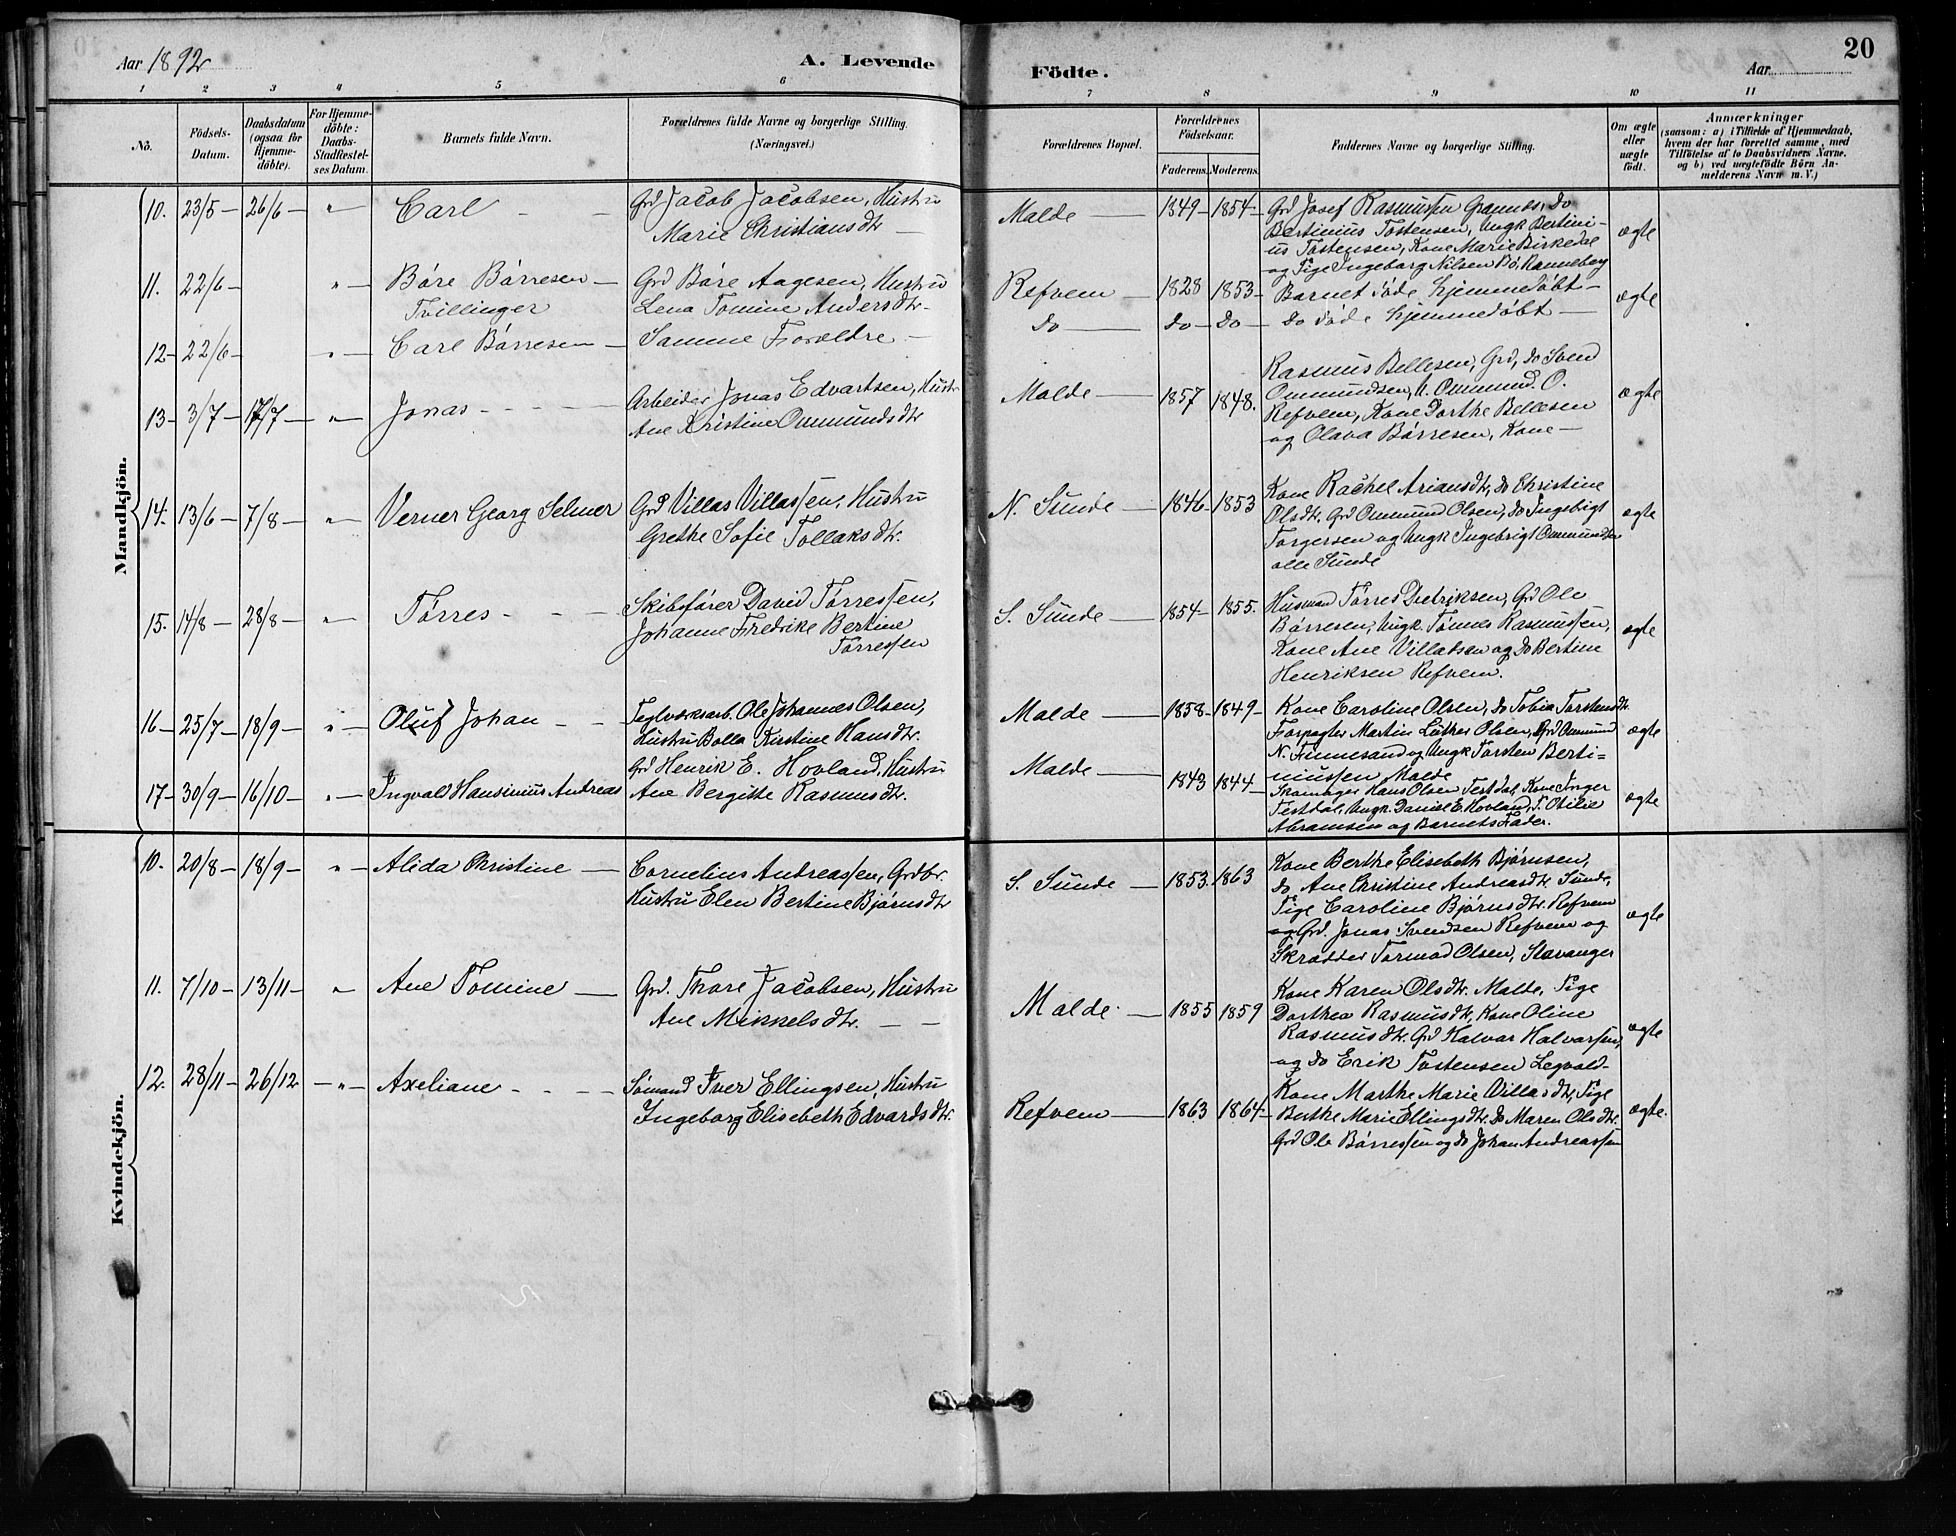 Aar 1892
A. Levende
Födte.
Aar
20
1 2 3 4 5 6 7 8 9 10 11
No.
Födsels-
Datum.
Daabsdatum
(ogsaa for
Hjemme-
döbte).
For Hjemme-
döbte:
Daabs-
Stadfæstel-
ses Datum.
Barnets fulde Navn.
Forældrenes fulde Navne og borgerlige Stilling.
(Næringsvei.)
Forældrenes Bopæl.
Forældrenes
Födselsaar.
Faderens. Moderens.
Faddernes Navne og borgerlige Stilling.
Om ægte
eller
uægte
födt.
Anmærkninger
(saasom: a) i Tilfælde af Hjemmedaab,
hvem der har forrettet samme, med
Tilföielse af to Daabsvidners Navne.
og b) ved uægtefödte Börn An-
melderens Navn m. V.)
Mandkjön.
10. 23/5 - 26/6 - " - Carl - - Grd Jacob Jacobsen, Hustru
Marie Christiansdtr -
Malde - 1849 - 1854 - Grd Josef Rasmussen Grannes, do
Bertinius Tostensen, Ungk Bertini-
us Tostensen, Kone Marie Birkedal
og Pige Ingeborg Nilsen Bø, Ranneberg
ægte
11. 22/6 - " - Børe Børresen -
Tvillinger
Grd Børe Aagesen, Hustru
Lena Tomine Andersdtr -
Refvem - 1828 1853 - Barnet døde hjemmedøbt -
ægte
12 - 22/6 - " - Carl Børresen - Samme Forældre -
do - do - do - do døde hjemmedøbt -
13 - 3/7 - 17/7 - " - Jonas - - - Arbeider Jonas Edvartsen, Hustr
Ane Kristine Ommundsdtr
Malde - 1857 1848. Rasmus Bellesen, Grd, do Sven
Ommundsen, U. Ommund. O.
Refvem, Kone Dorthe Bellesen
og Olava Børresen, Kone -
ægte
14. 13/6 - 7/8 - " - Verner Georg Selmer Grd Villas Villassen, Hustru
Grethe Sofie Tollaksdtr.
N. Sunde - 1846 - 1853 Kone Rachel Ariansdtr, do Christine
Olsdtr. Grd Ommund Olsen, do Ingebrigt
Torgersen og Ungk Ingebrigt Ommundsen
alle Sunde
ægte
15. 14/8 - 28/8 - " - Tørres - - - Skibsfører David Tørressen,
Johanne Fredrike Bertine
Tørressen
S. Sunde - 1854 - 1855. Husmand Tørres Dietriksen, Grd Ole
Børresen, Ungk. Tønnes Rasmussen,
Kone Ane Villadsen og do Bertine
Henriksen Refvem.
ægte
16 - 25/7 - 18/9 - " - Oluf Johan - - Teglværksarb. Ole Johannes Olsen,
Hustru Bolla Kirstine Hansdtr.
Malde - 1858 - 1849 - Kone Caroline Olsen, do Tobia Torstensdtr
Forpagter Martin Luther Olsen, Grd Ommund
N. Finnesand og Ungk Torsten Berti-
niussen Malde
ægte
17 - 30/9 - 16/10 - " - Ingvald Hansinius Andreas Grd Henrik E. Hovland, Hustru
Ane Bergitte Rasmusdtr.
Malde - 1843 1844 - Skomager Hans Olsen Testdal, Kone Inger
Testdal, Ungk. Daniel E. Hovland, P. Otilie
Abramsen og Barnets Fader.
ægte
Kvindekjön.
10. 20/8 - 18/9 - " - Alida Christine - Cornelius Andreassen, Grdbr.
Hustru Elen Bertine Bjørnsdtr
S. Sunde - 1853. 1863 Kone Berthe Elisebeth Bjørnsen,
do Ane Christine Andreasdtr. Sunde,
Pige Caroline Bjørnsdtr. Refvem
og Grd. Jonas Svendsen Refvem og
Skrædder Tormod Olsen, Stavanger
ægte
11. 7/10 - 13/11 - " Ane Tomine - Grd. Thore Jacobsen, Hustru
Ane Mikkelsdtr. - -
Malde - 1855 1859 Kone Karen Olsdtr. Malde, Pige
Dorthea Rasmusdtr, Kone Oline
Rasmusdtr. Grd Halvar Halvarsen,
og do Erik Tostensen Legvold -
ægte
12. 28/11 - 26/12 - " - Axeliane - - - Sømand Iver Ellingsen, Hustru
Ingeborg Elisebeth Edvardsdtr.
Refvem - 1863 1864 - Kone Marthe Marie Villasdtr, Pige
Berthe Marie Ellingsdtr. do Maren Olsdtr.
Grd Ole Børressen og do Johan Andreassen
ægte.